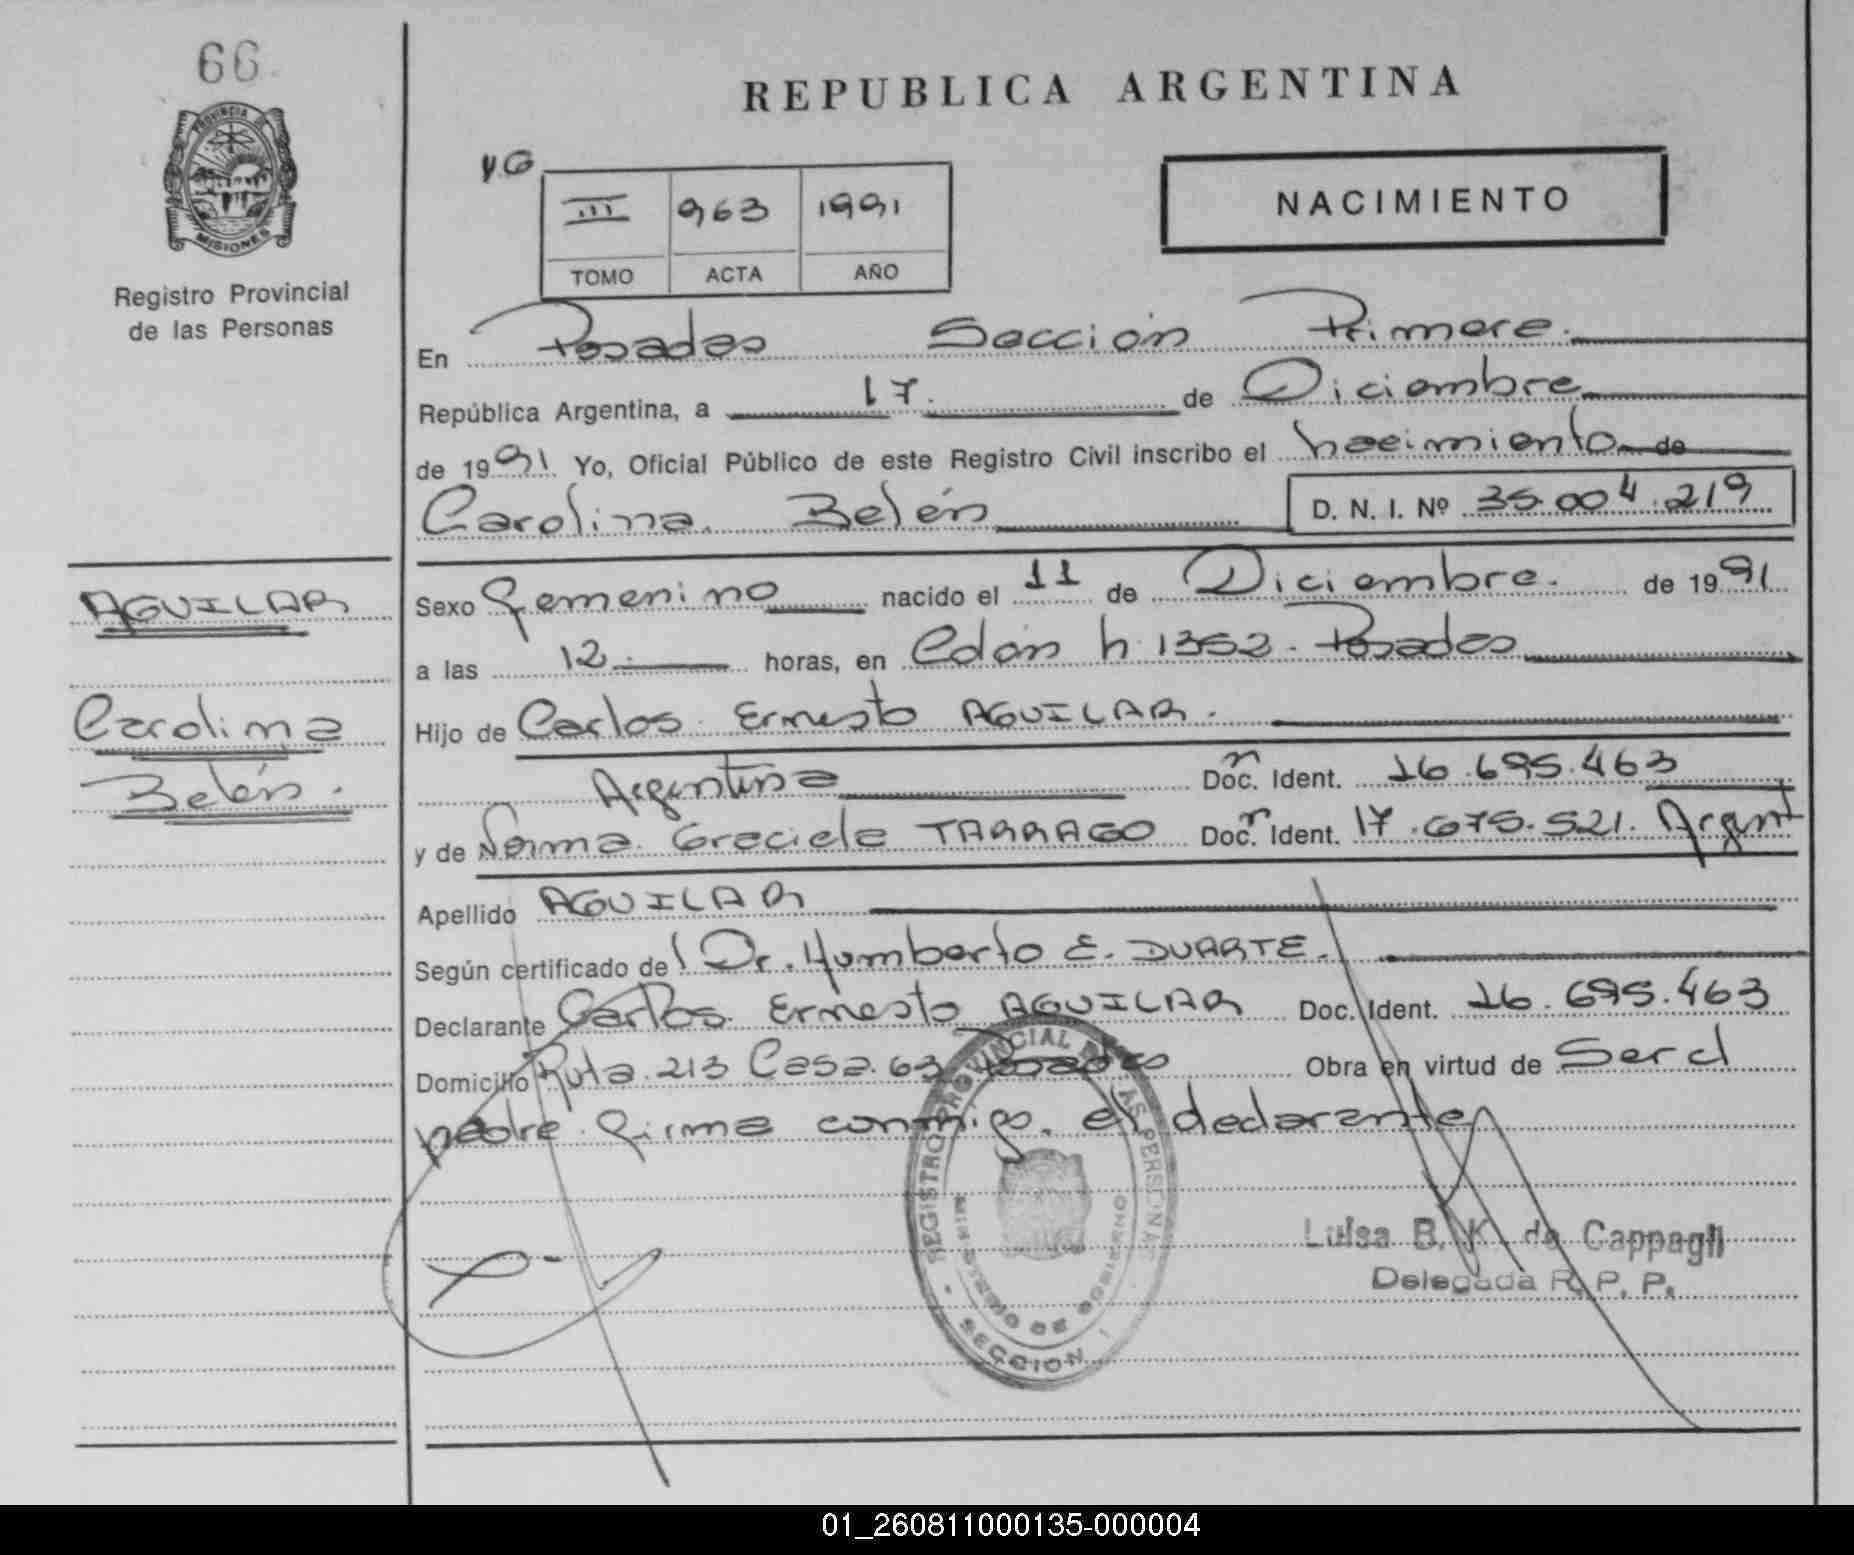 66
PROVINCIA DE
MISIONES
Registro Provincial
de las Personas
REPUBLICA ARGENTINA
NACIMIENTO
III 963 1991
TOMO ACTA AÑO
En Posadas Sección Primera.
República Argentina, a 17. de Diciembre
de 1991. Yo, Oficial Público de este Registro Civil inscribo el nacimiento de
Carolina Belén D. N. I. Nº 35.004.219
AGUILAR
Carolina
Belén.
Sexo Femenino nacido el 11 de Diciembre. de 1991
a las 12. horas, en Edón h. 1352. Posadas
Hijo de Carlos Ernesto AGUILAR.
Argentina Doc. Ident. 16.695.463
y de Norma Graciela TARRAGO Doc. Ident. 17.675.521. Argent
Apellido AGUILAR
Según certificado del Dr. Humberto E. DUARTE.
Declarante Carlos Ernesto AGUILAR Doc. Ident. 16.695.463
Domicilio Ruta 213 Casa 63 Posadas Obra en virtud de Ser el
padre firma conmigo, el declarante
REGISTRO PROVINCIAL DE LAS PERSONAS
MINISTERIO DE GOBIERNO
SECCION 1
Luisa B. K. de Cappagli
Delegada R. P. P.
01_260811000135-000004